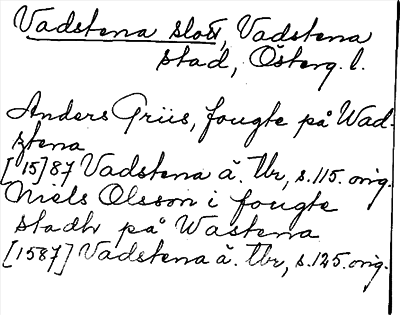 Vadstena slott, Vadstena
stad, Österg. l.
Anders Griis, fougte på Wad-
ztena
[15]87 Vadstena ä. Tbr, s. 115. orig.
Niels Olsson i fougte
stadh på Wastena
[1587] Vadstena ä. Tbr, s. 125. orig.